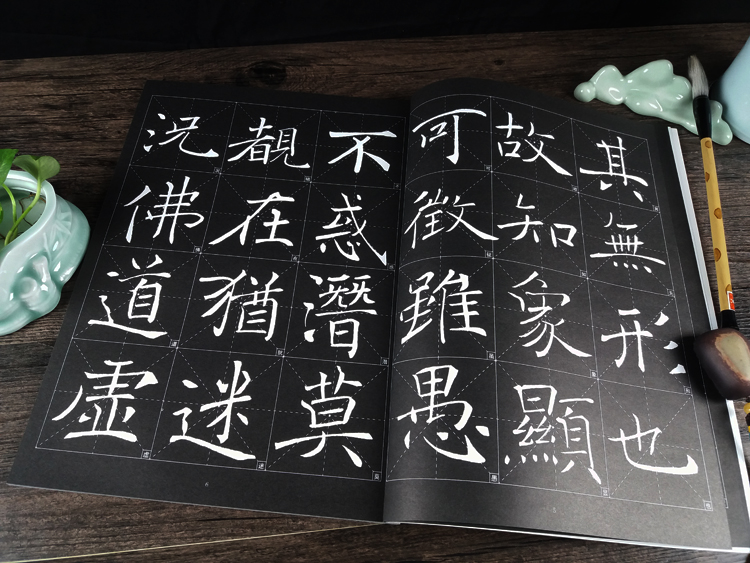 其無形也
故知象顯
可徵雖愚
不惑潛莫
覩在猶迷
況佛道虛